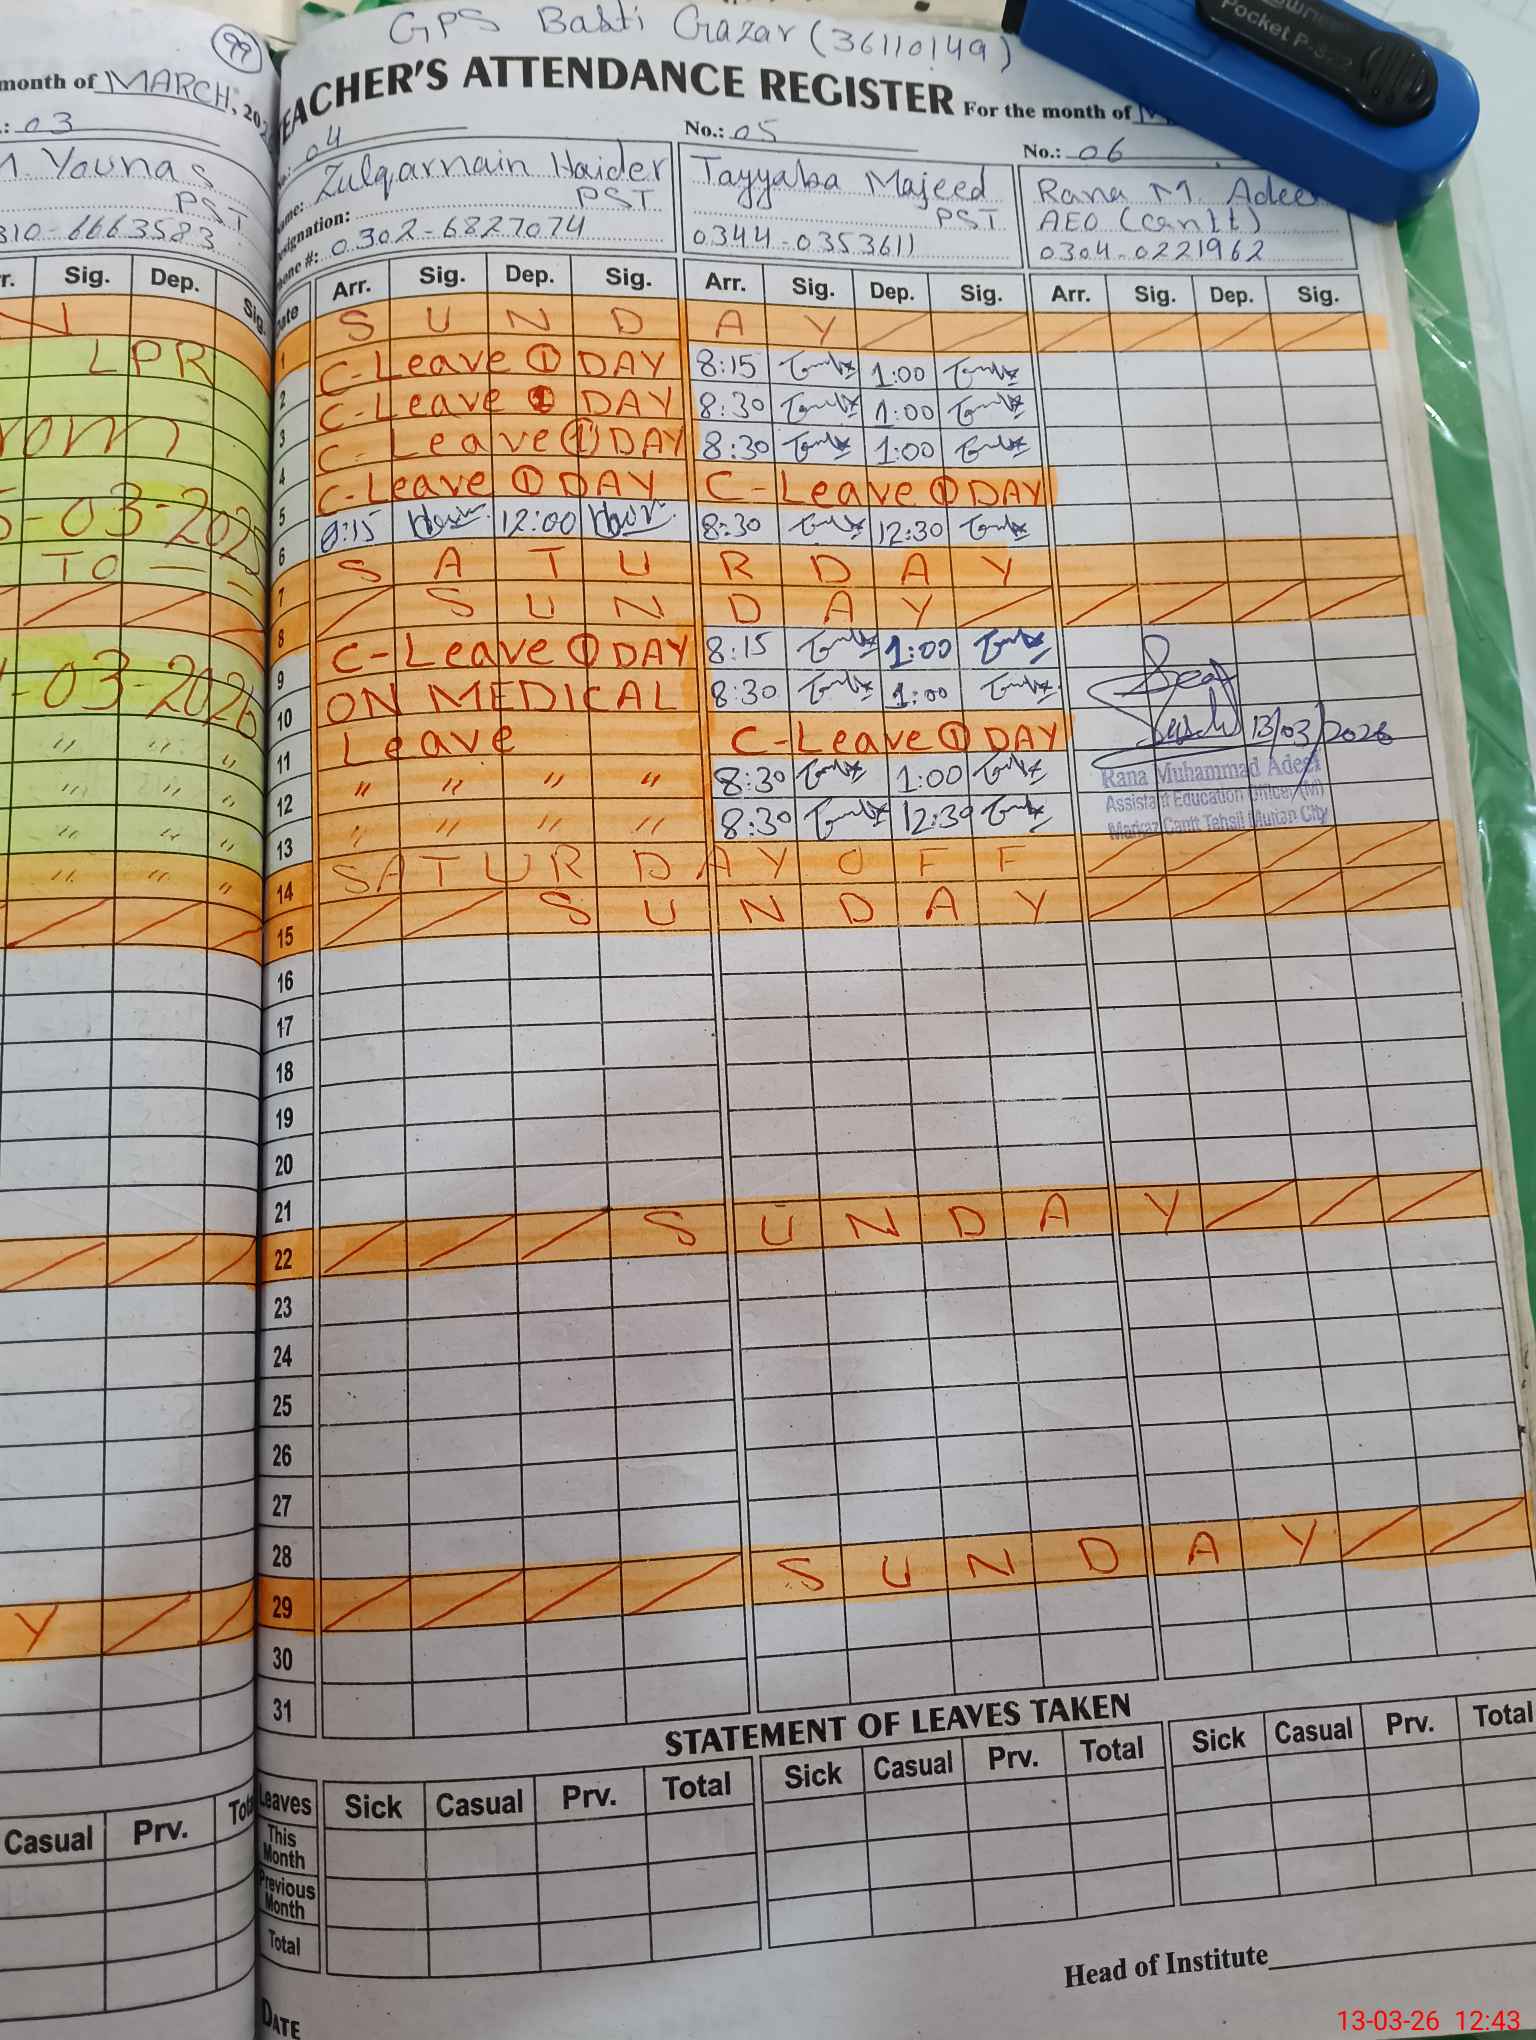 99
month of MARCH, 202
.: 03
M. Younas
PST
310-6663583
r. Sig. Dep. Sig.
N
LPR
rom
5-03-202
TO — —
-03-2026
" " "
" " "
" " "
" " "
Y
Casual Prv. Tot
GPS Basti Gazar (36110149)
EACHER'S ATTENDANCE REGISTER For the month of
No.: 04
Name: Zulqarnain Haider
Designation: PST
Phone #: 0302-6827074
No.: 05
Tayyaba Majeed
PST
0344-0353611
No.: 06
Rana M. Adee
AEO (Cantt)
0304-0221962
Date Arr. Sig. Dep. Sig. Arr. Sig. Dep. Sig. Arr. Sig. Dep. Sig.
1 S U N D A Y
2 C-Leave ① DAY 8:15 1:00
3 C-Leave ① DAY 8:30 1:00
4 C-Leave ① DAY 8:30 1:00
5 C-Leave ① DAY C-Leave ① DAY
6 8:15 12:00 8:30 12:30
7 S A T U R D A Y
8 S U N D A Y
9 C-Leave ① DAY 8:15 1:00
10 ON MEDICAL 8:30 1:00
11 Leave C-Leave ① DAY
12 " " " " 8:30 1:00
13 " " " " 8:30 12:30
13/03/2026
Rana Muhammad Adeel
Assistant Education Officer (M)
Markaz Cantt Tehsil Multan City
14 S A T U R D A Y O F F
15 S U N D A Y
16
17
18
19
20
21
22 S U N D A Y
23
24
25
26
27
28
29 S U N D A Y
30
31
STATEMENT OF LEAVES TAKEN
Leaves Sick Casual Prv. Total Sick Casual Prv. Total Sick Casual Prv. Total
This Month
Previous Month
Total
Head of Institute
DATE
Pocket P-
13-03-26 12:43